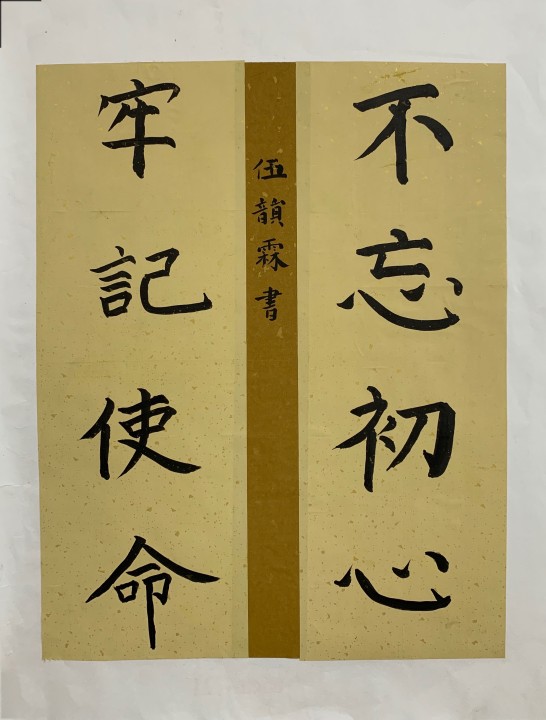 不忘初心
牢記使命
伍韻霖書